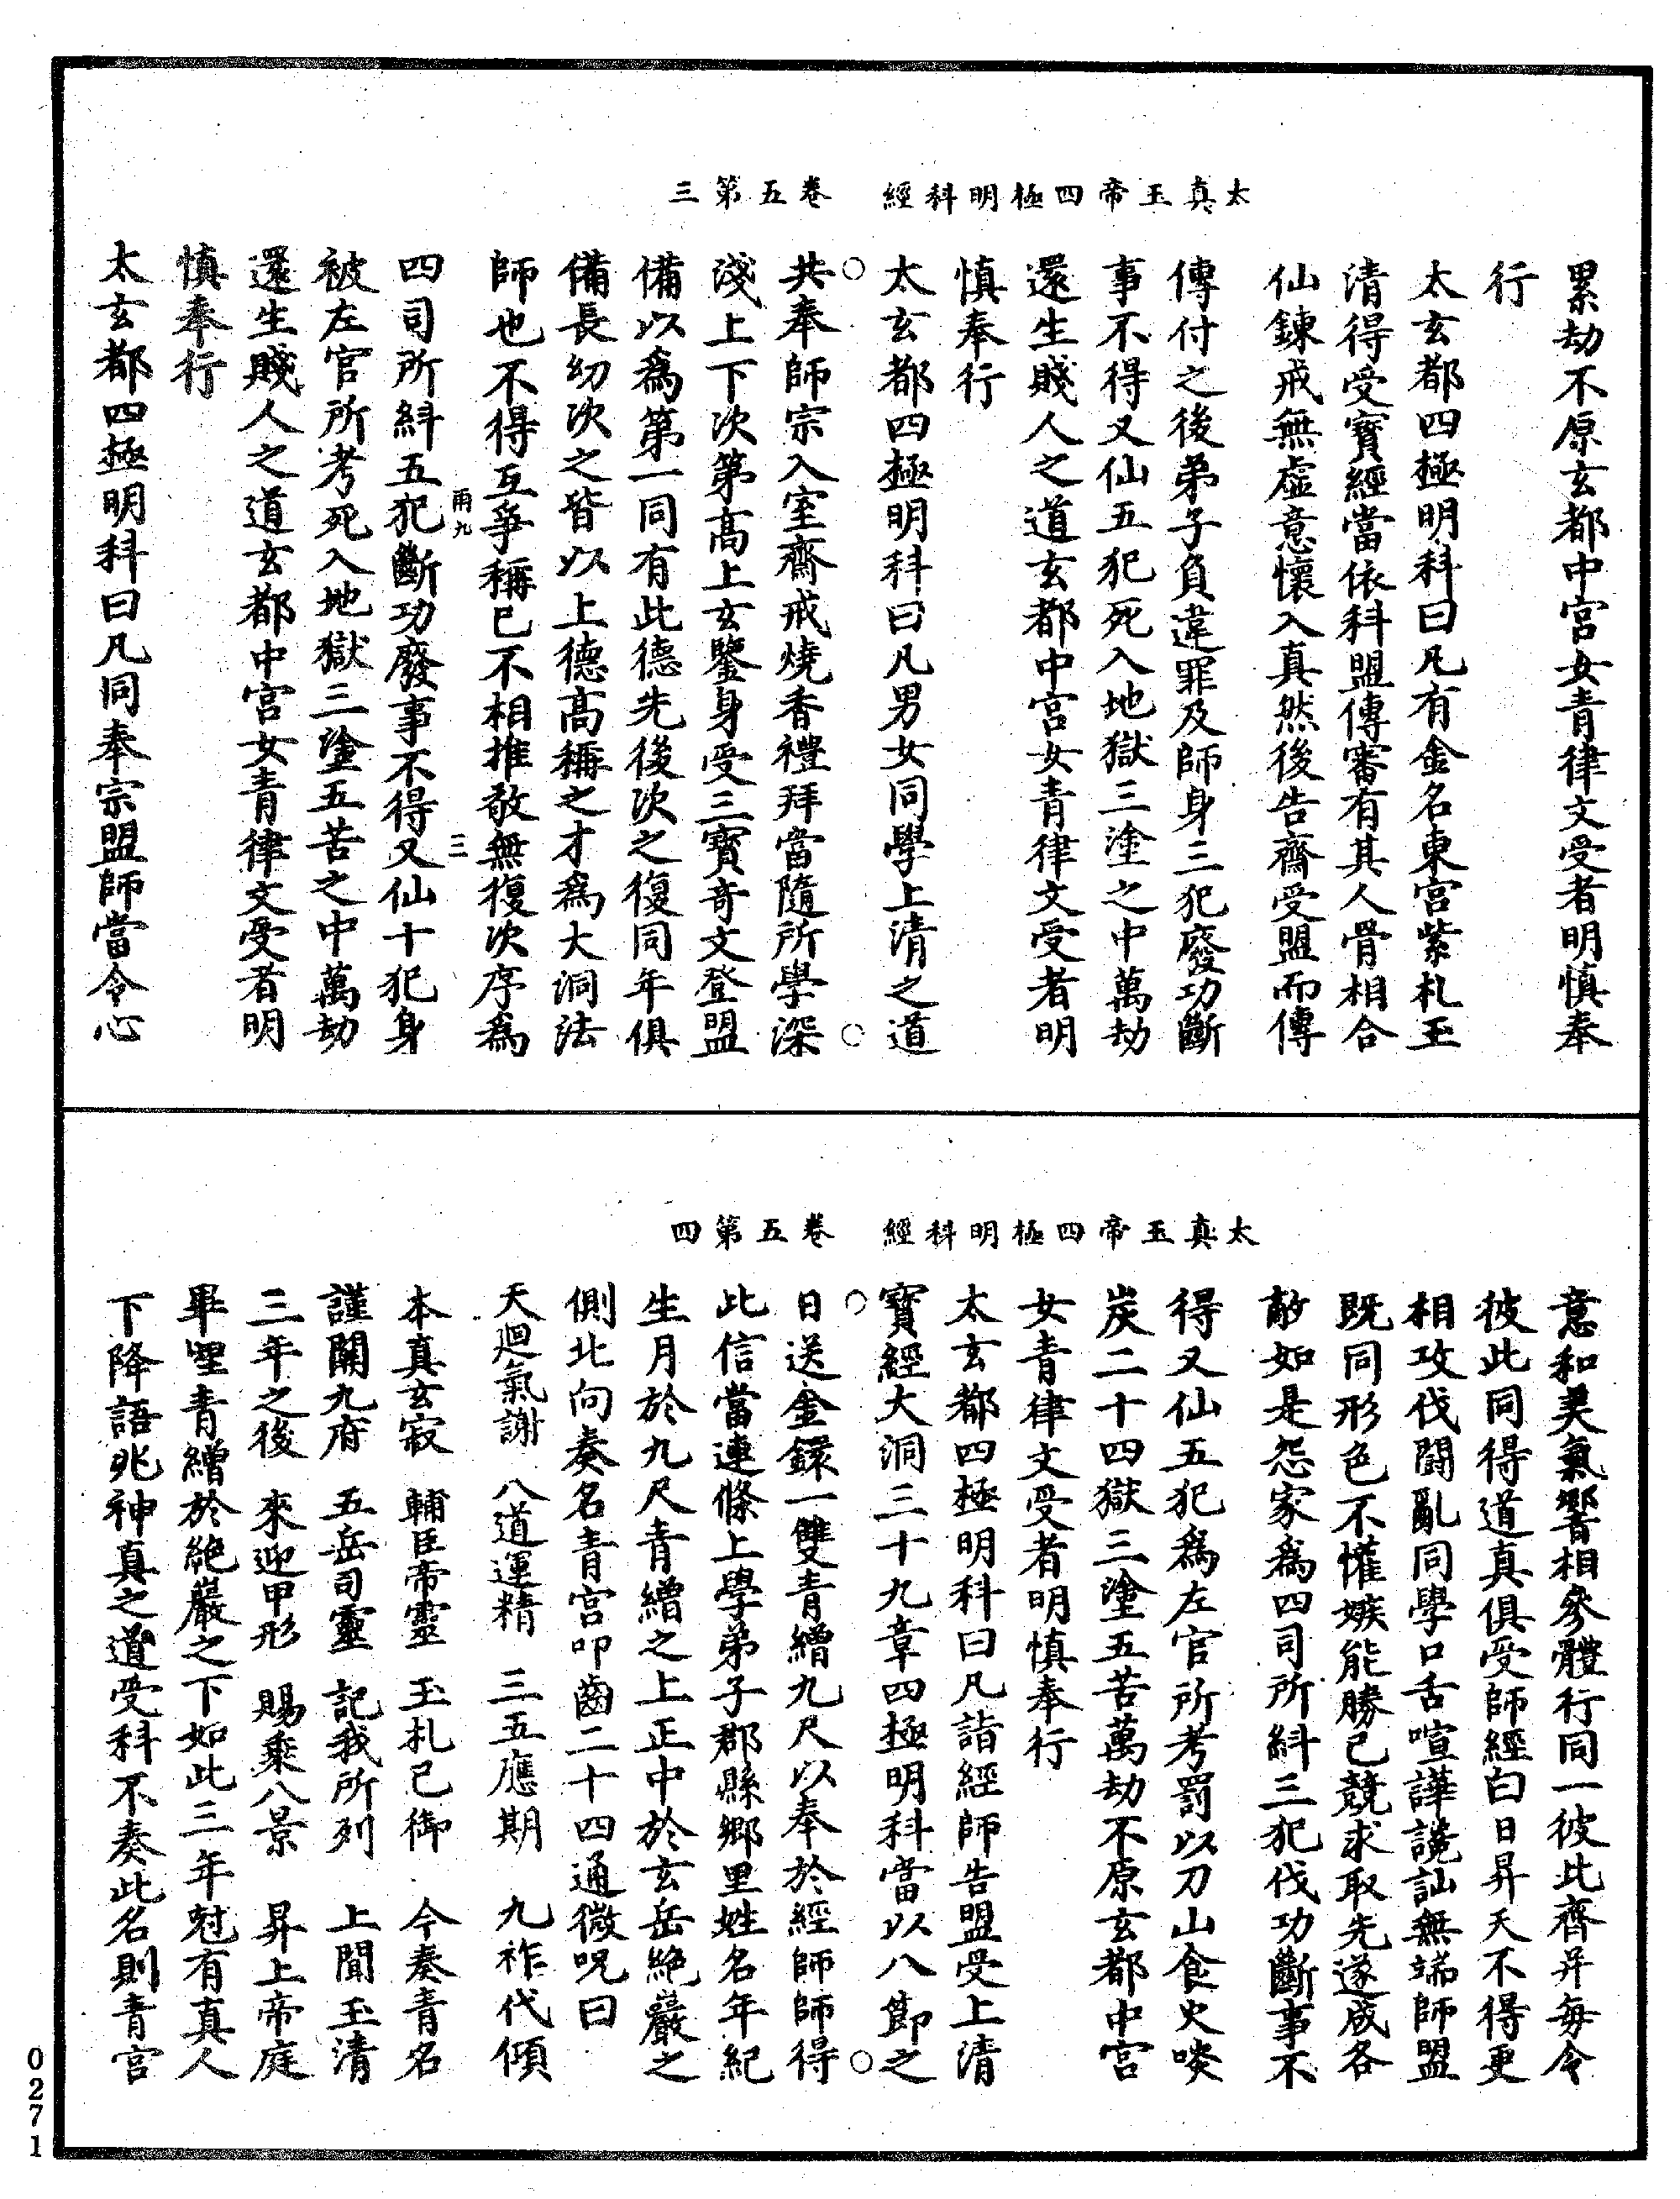 太真玉帝四極明科經　卷五第三
累劫不原玄都中宮女青律文受者明慎奉
行
太玄都四極明科曰凡有金名東宮紫札玉
清得受寶經當依科盟傳審有其人骨相合
仙鍊戒無虛意懷入真然後告齋受盟而傳
傳付之後弟子負違罪及師身三犯廢功斷
事不得又仙五犯死入地獄三塗之中萬劫
還生賤人之道玄都中宮女青律文受者明
慎奉行
太玄都四極明科曰凡男女同學上清之道
共奉師宗入室齋戒燒香禮拜當隨所學深
淺上下次第高上玄鑒身受三寶奇文登盟
備以為第一同有此德先後次之復同年俱
備長幼次之皆以上德高稱之才為大洞法
師也不得互爭稱已不相推敬無復次序為
雨九　三
四司所糾五犯斷功廢事不得又仙十犯身
被左官所考死入地獄三塗五苦之中萬劫
還生賤人之道玄都中宮女青律文受者明
慎奉行
太玄都四極明科曰凡同奉宗盟師當令心
太真玉帝四極明科經　卷五第四
意和美氣響相參體行同一彼此齊昇每令
彼此同得道真俱受師經白日昇天不得更
相攻伐鬪亂同學口舌喧譁讒訕無端師盟
既同形色不懽嫉能勝己競求取先遂成各
敵如是怨家為四司所糾三犯伐功斷事不
得又仙五犯為左官所考罰以刀山食火啖
炭二十四獄三塗五苦萬劫不原玄都中宮
女青律文受者明慎奉行
太玄都四極明科曰凡詣經師告盟受上清
寶經大洞三十九章四極明科當以八節之
日送金鐶一雙青繒九尺以奉於經師師得
此信當連條上學弟子郡縣鄉里姓名年紀
生月於九尺青繒之上正中於玄岳絕巖之
側北向奏名青宮叩齒二十四通微呪曰
天迴氣謝　八道運精　三五應期　九祚代傾
本真玄寂　輔臣帝靈　玉札已御　今奏青名
謹關九府　五岳司靈　記我所列　上聞玉清
三年之後　來迎甲形　賜乘八景　昇上帝庭
畢埋青繒於絕巖之下如此三年尅有真人
下降語兆神真之道受科不奏此名則青宮
0271